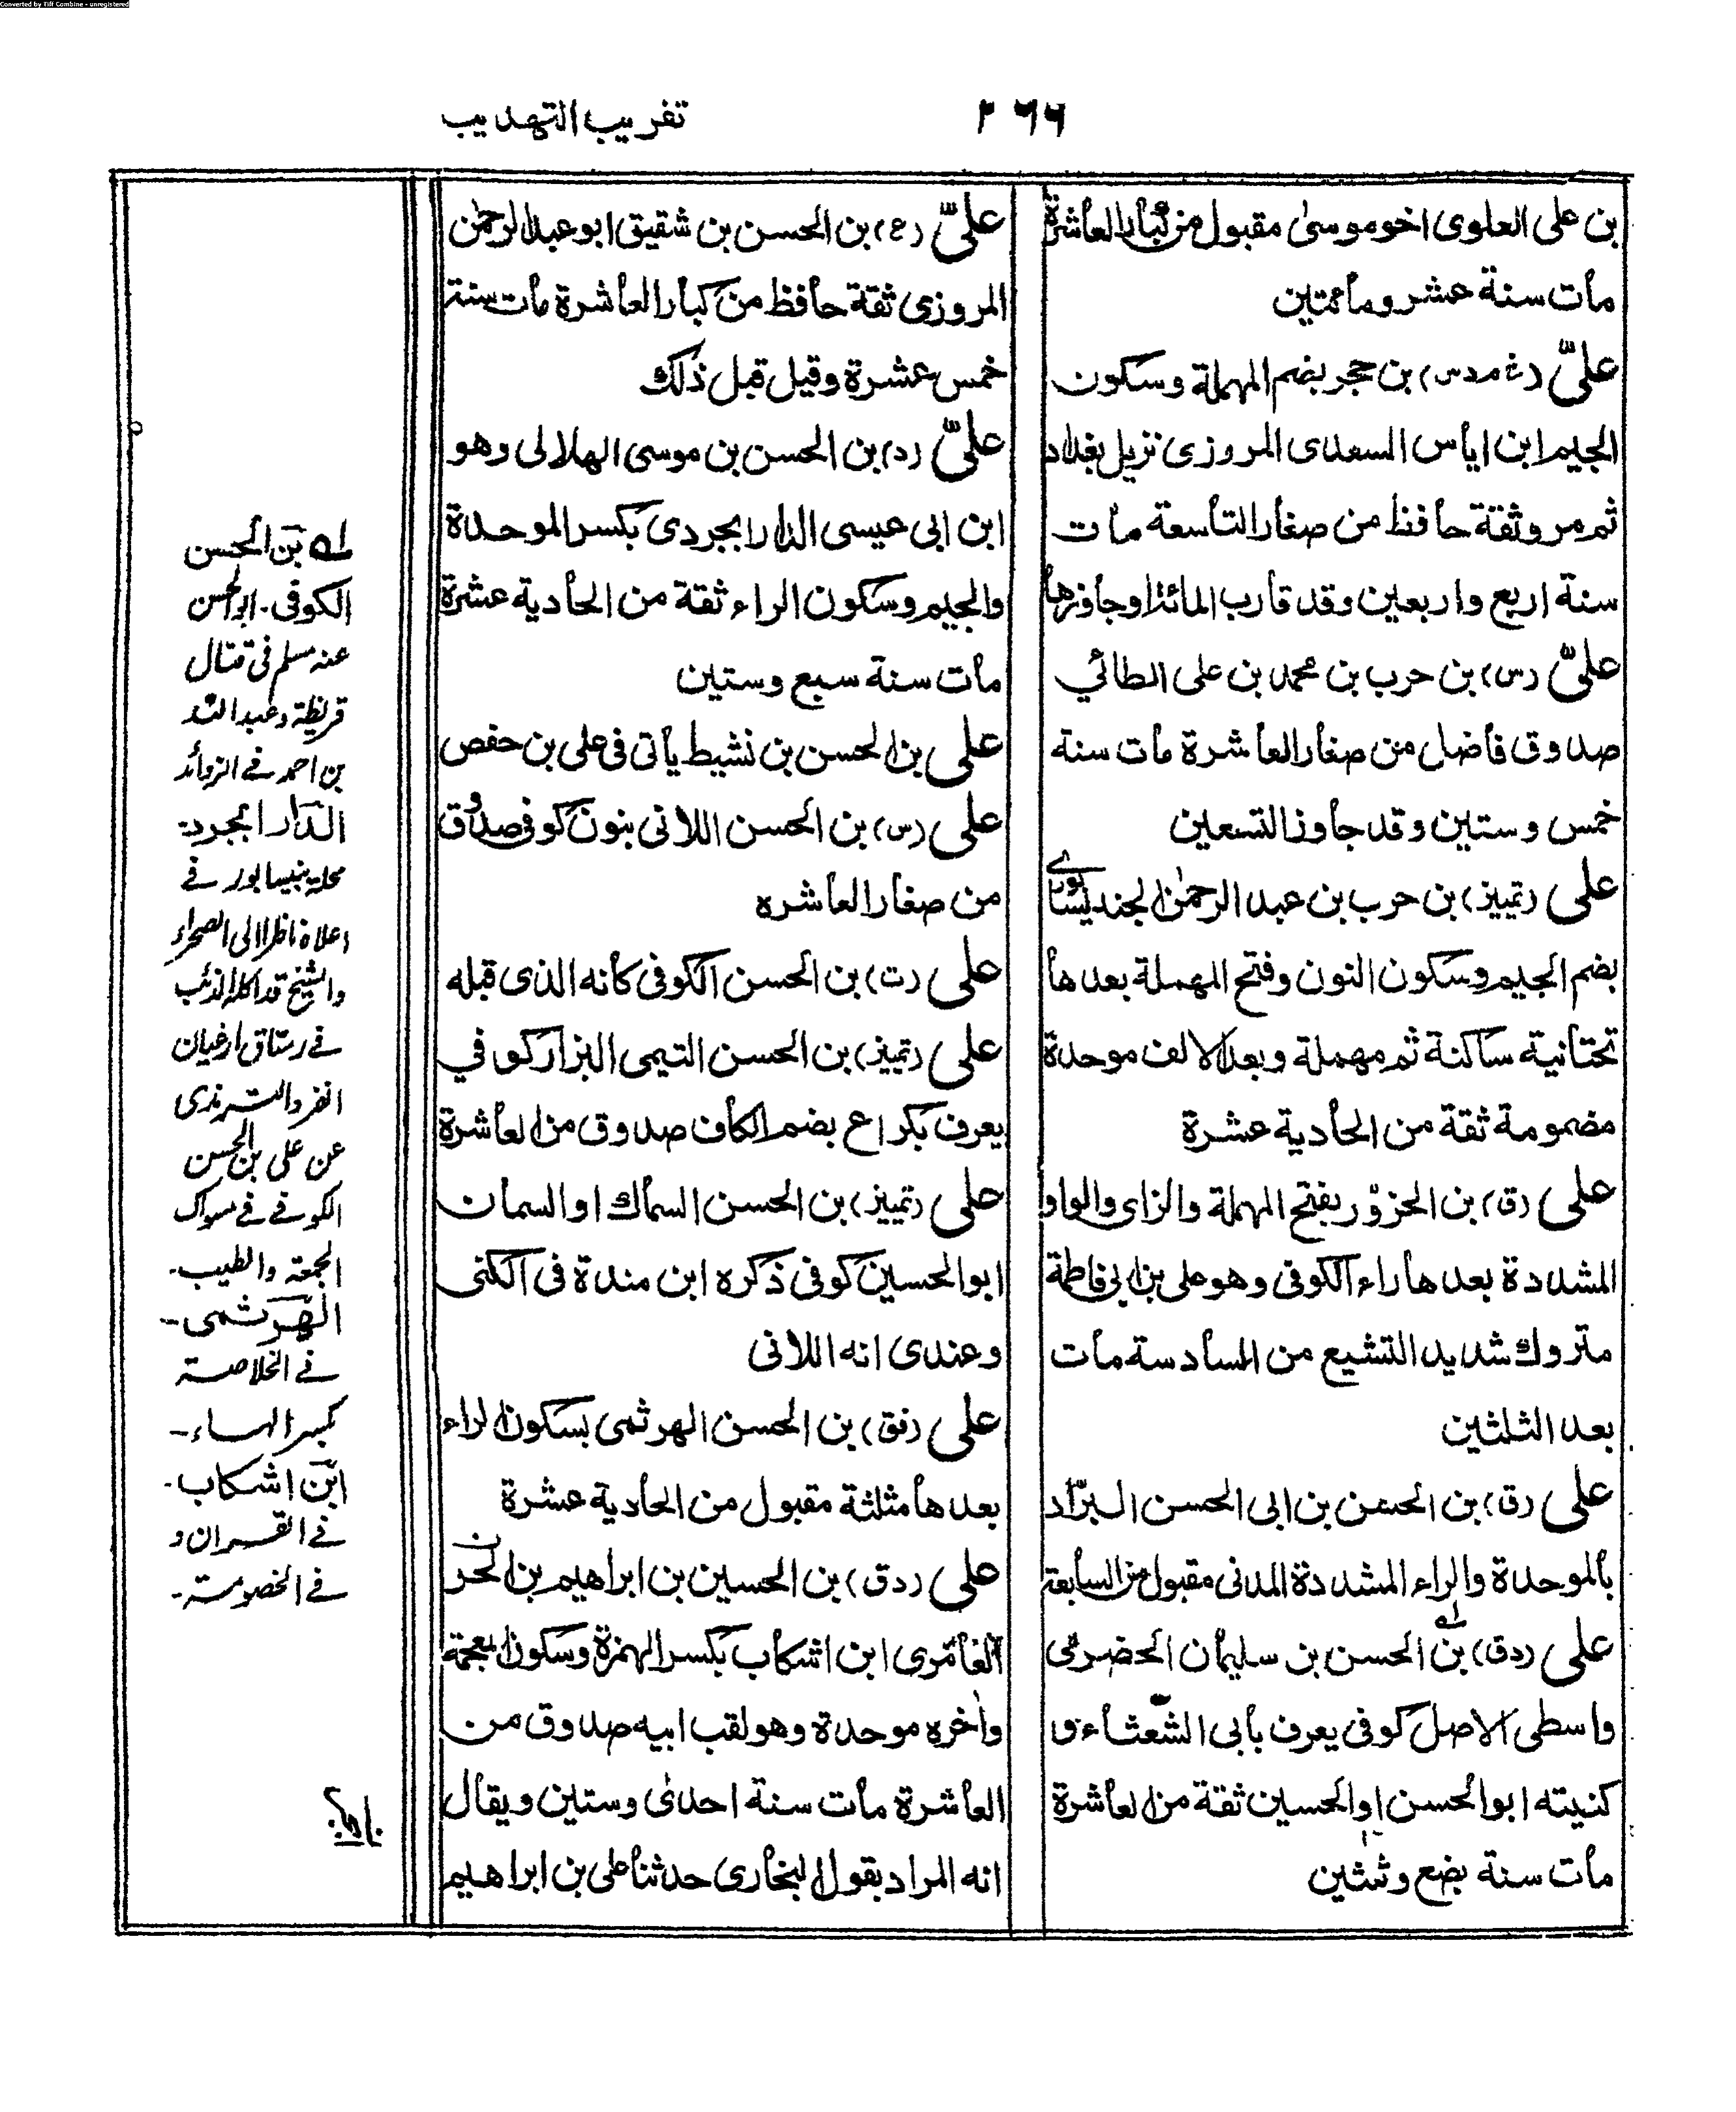 Converted by Tiff Combine - unregistered
٢٦٦
تقريب التهذيب
بن على العلوى اخو موسىٰ مقبول من كبار العاشرة
مات سنة عشر ومائتين
علىّ (خ م د س) بن حجر بضم المهملة وسكون
الجيم ابن اياس السعدى المروزى نزيل بغداد
ثم مرو ثقة حافظ من صغار التاسعة مات
سنة اربع واربعين وقد قارب المائة او جاوزها
علىّ (س) بن حرب بن محمد بن على الطائي
صدوق فاضل من صغار العاشرة مات سنة
خمس وستين وقد جاوز التسعين
على (تمييز) بن حرب بن عبد الرحمٰن الجنديسابورے
بضم الجيم وسكون النون وفتح المهملة بعدها
تحتانية ساكنة ثم مهملة وبعد الالف موحدة
مضمومة ثقة من الحادية عشرة
على (ق) بن الحزوّر بفتح المهملة والزاى والواو
المشددة بعدها راء الكوفى وهو على بن ابى فاطمة
متروك شديد التشيع من السادسة مات
بعد الثلثين
على (ق) بن الحسن بن ابى الحسن البرّاد
بالموحدة والراء المشددة المدنى مقبول من السابعة
على (دق) بن الحسن بن سليمان الحضرمى
واسطى الاصل كوفى يعرف بأبى الشعثاء و
كنيته ابو الحسن او الحسين ثقة من العاشرة
مات سنة بضع وثلثين
علىّ (ع) بن الحسن بن شقيق ابو عبد الرحمٰن
المروزى ثقة حافظ من كبار العاشرة مات سنة
خمس عشرة وقيل قبل ذلك
علىّ (د) بن الحسن بن موسى الهلالى وهو
ابن ابى عيسى الدارابجردى بكسر الموحدة
والجيم وسكون الراء ثقة من الحادية عشرة
مات سنة سبع وستين
على بن الحسن بن نشيط يأتى فى على بن حفص
على (س) بن الحسن اللانى بنون كوفى صدوق
من صغار العاشره
على (ت) بن الحسن الكوفى كأنه الذى قبله
على (تمييز) بن الحسن التيمى البزار كوفي
يعرف بكراع بضم الكاف صدوق من العاشرة
على (تمييز) بن الحسن السماك او السمان
ابو الحسين كوفى ذكره ابن مندة فى الكنى
وعندى انه اللانى
على (فق) بن الحسن الهرثمى بسكون الراء
بعدها مثلثة مقبول من الحادية عشرة
على (دق) بن الحسين بن ابراهيم بن الحر
العامرى ابن اشكاب بكسر الهمزة وسكون المعجمة
واٰخره موحدة وهو لقب ابيه صدوق من
العاشرة مات سنة احدىٰ وستين ويقال
انه المراد بقول البخارى حدثنا على بن ابراهيم
لہ بن الحسن
الكوفى - ابو الحسن
عنه مسلم فى قتال
قريظة وعبد الله
بن احمد فے الزوائد
الدارابجرد -
محلة بنيسابور فے
اعلاه ناظرا الى الصحراء
والشيخ قد اكله الذئب
فے رستاق ارغيان
انفرد الترمذى
عن على بن الحسن
الكوفے فے سواك
الجمعة والطيب -
الهرثمى -
فے الخلاصة
بكسر الهاء -
ابن اشكاب -
فے القران و
فے الخصومة -